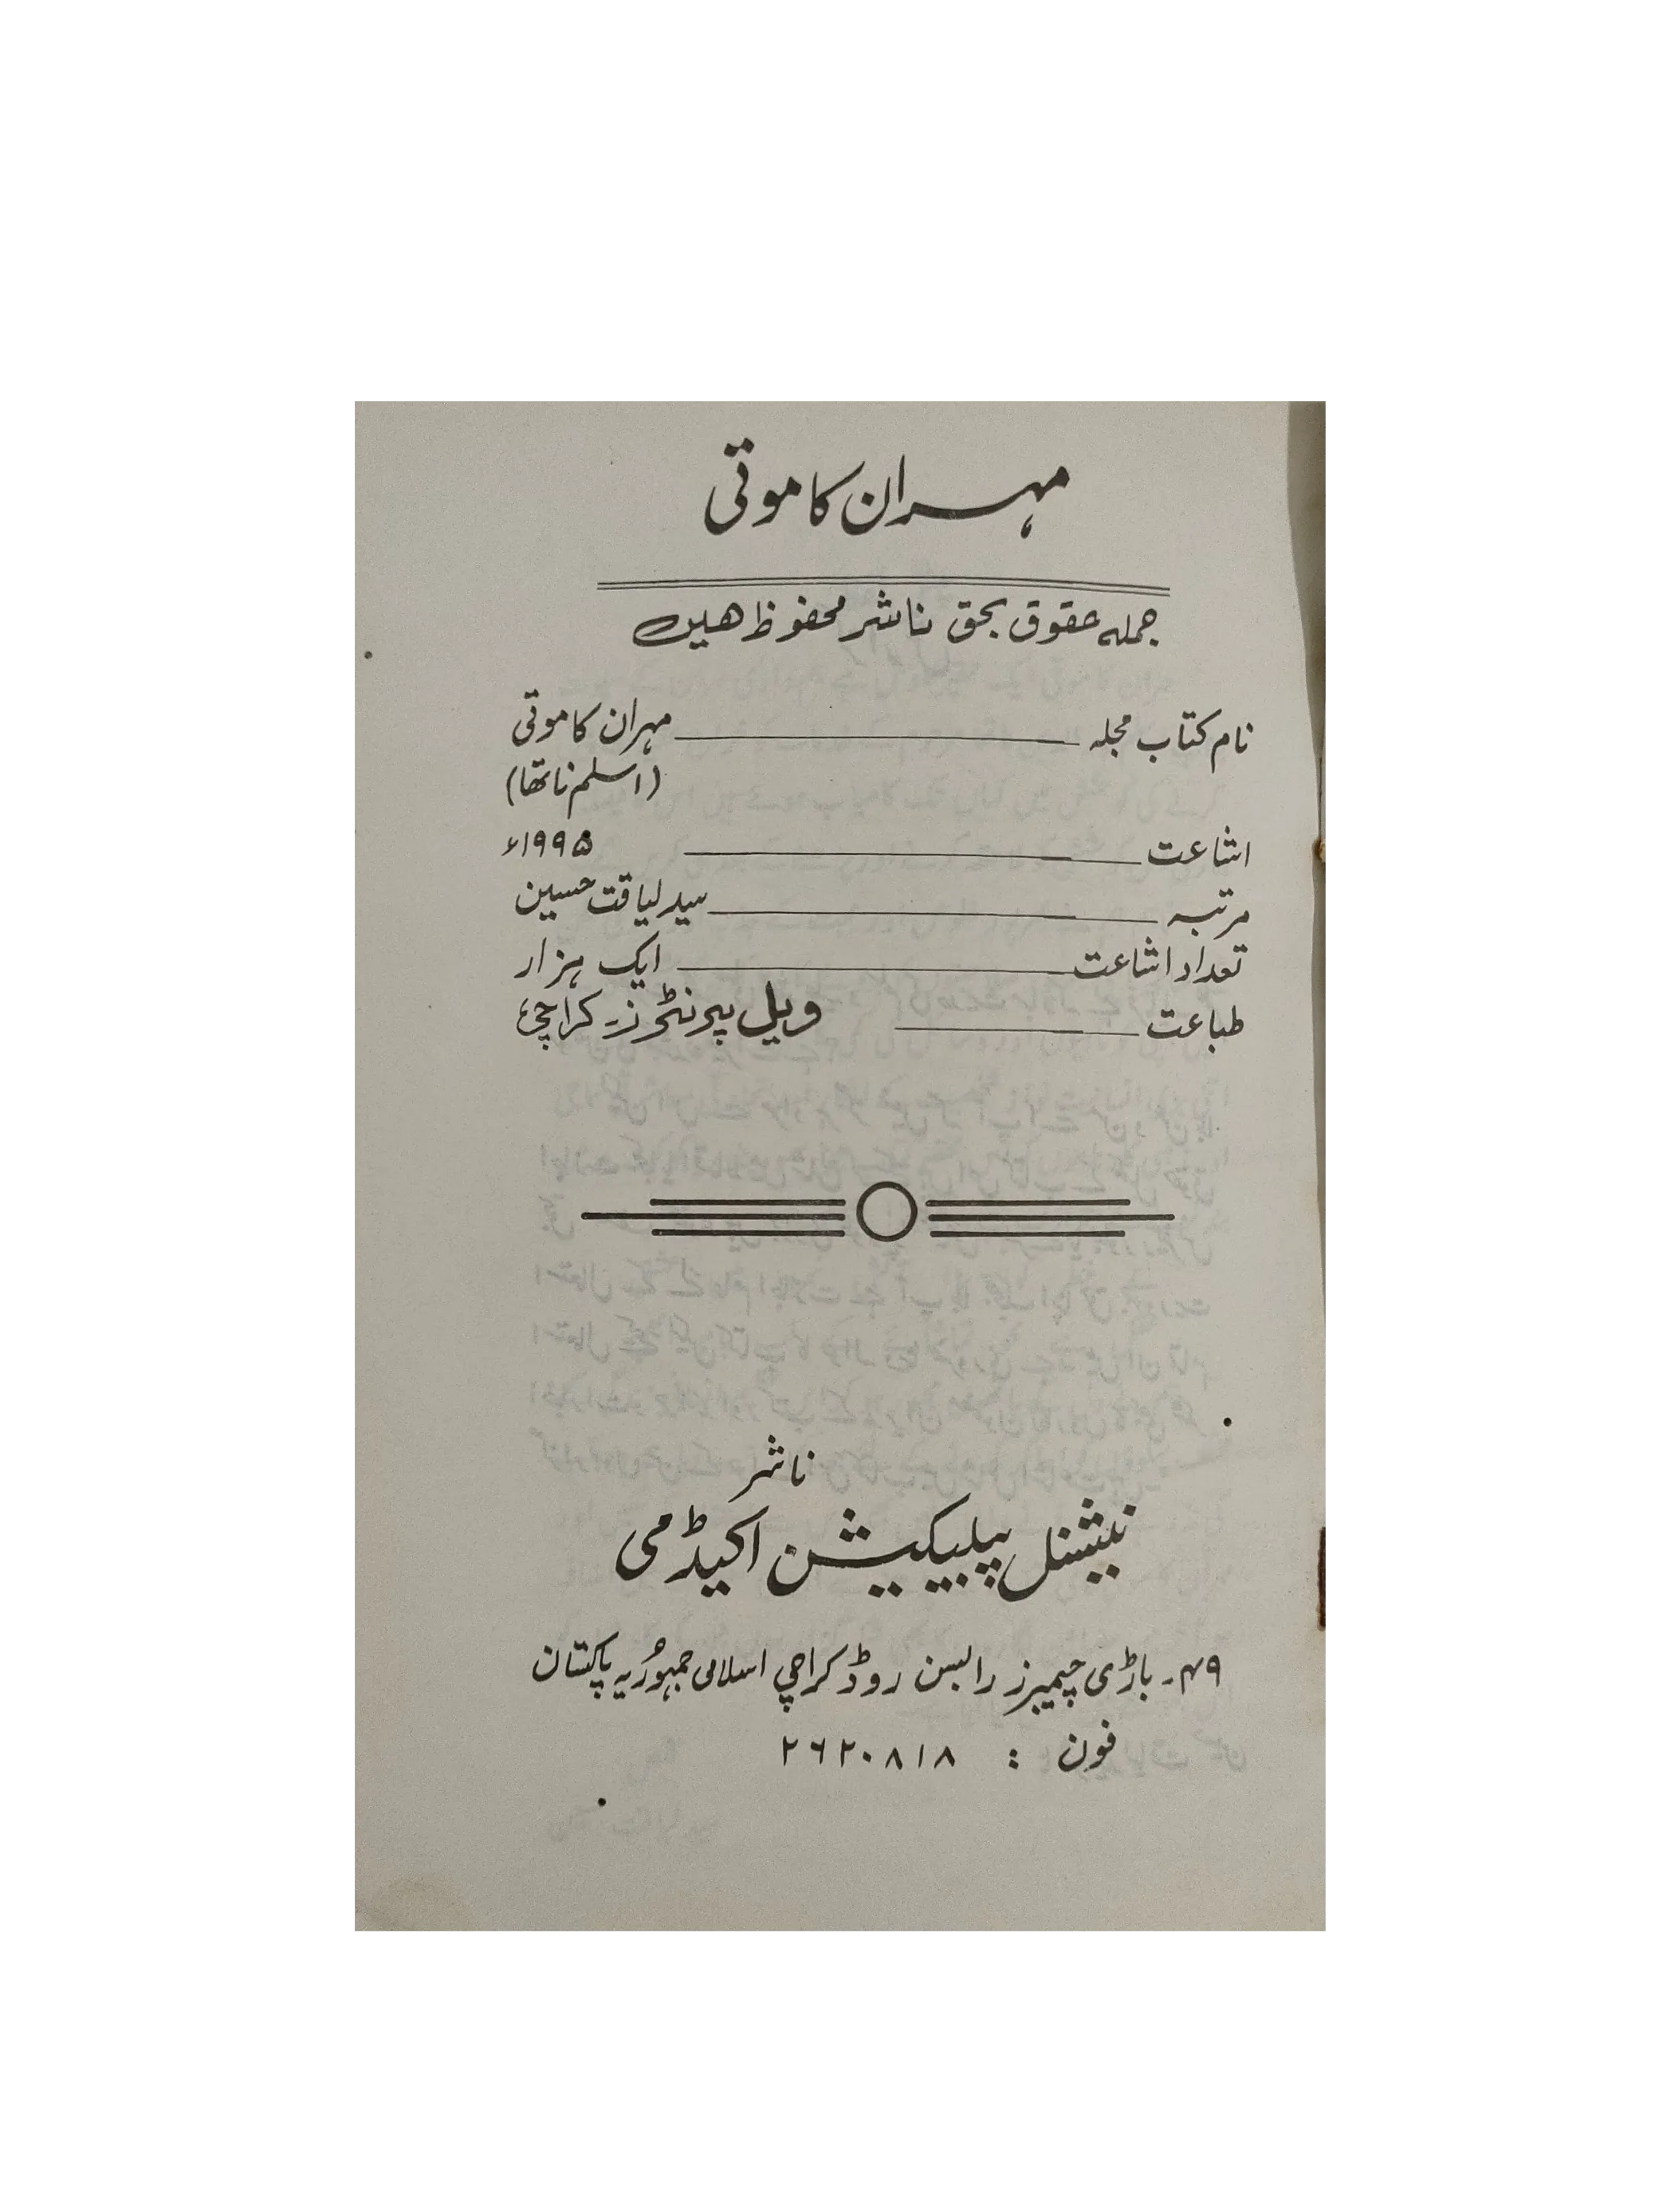 مہران کا موتی
جملہ حقوق بحق ناشر محفوظ ھیں
نام کتاب مجلہ ــــــ مہران کا موتی
(اسلم ناتھا)
اشاعت ــــــ ۱۹۹۵ء
مرتبہ ــــــ سید لیاقت حسین
تعداد اشاعت ــــــ ایک ہزار
طباعت ــــــ ویل پرنٹرز۔ کراچی
ناشر
نیشنل پبلیکیشن اکیڈمی
۴۹۔ باڑی چیمبرز رابسن روڈ کراچی اسلامی جمہوُریہ پاکستان
فون : ۲۶۲۰۸۱۸